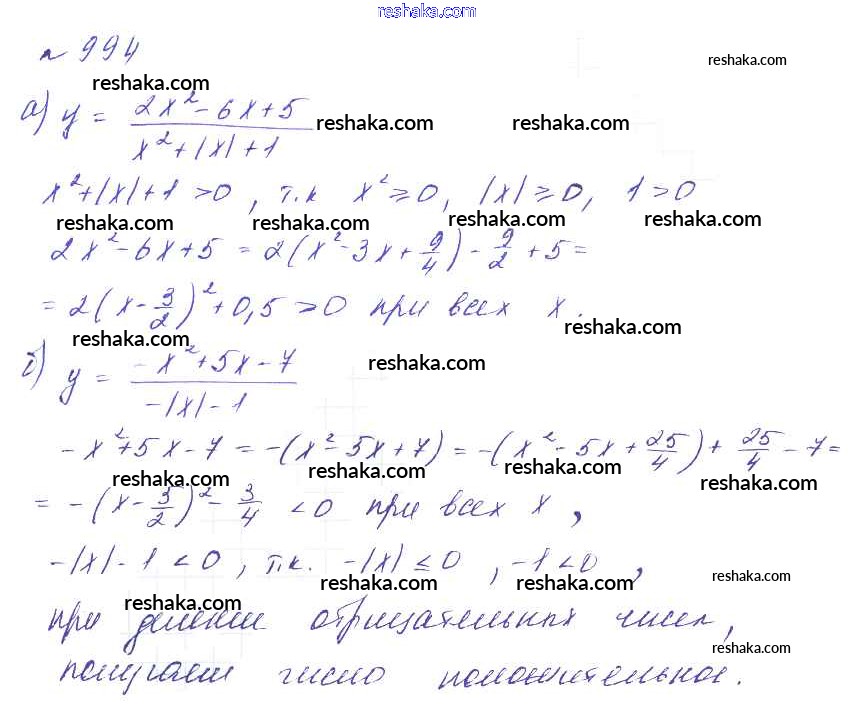 reshaka.com
№ 994
reshaka.com
reshaka.com
а) y = (2x² - 6x + 5) / (x² + |x| + 1)
reshaka.com reshaka.com
x² + |x| + 1 > 0, т.к x² ≥ 0, |x| ≥ 0, 1 > 0
reshaka.com reshaka.com reshaka.com reshaka.com
2x² - 6x + 5 = 2(x² - 3x + 9/4) - 9/2 + 5 =
= 2(x - 3/2)² + 0,5 > 0 при всех x.
reshaka.com
reshaka.com
б) y = (-x² + 5x - 7) / (-|x| - 1)
reshaka.com
-x² + 5x - 7 = -(x² - 5x + 7) = -(x² - 5x + 25/4) + 25/4 - 7 =
reshaka.com reshaka.com reshaka.com reshaka.com
= -(x - 5/2)² - 3/4 < 0 при всех x,
-|x| - 1 < 0, т.к. -|x| ≤ 0, -1 < 0,
reshaka.com reshaka.com reshaka.com
reshaka.com
при делении отрицательных чисел,
reshaka.com
получаем число положительное.